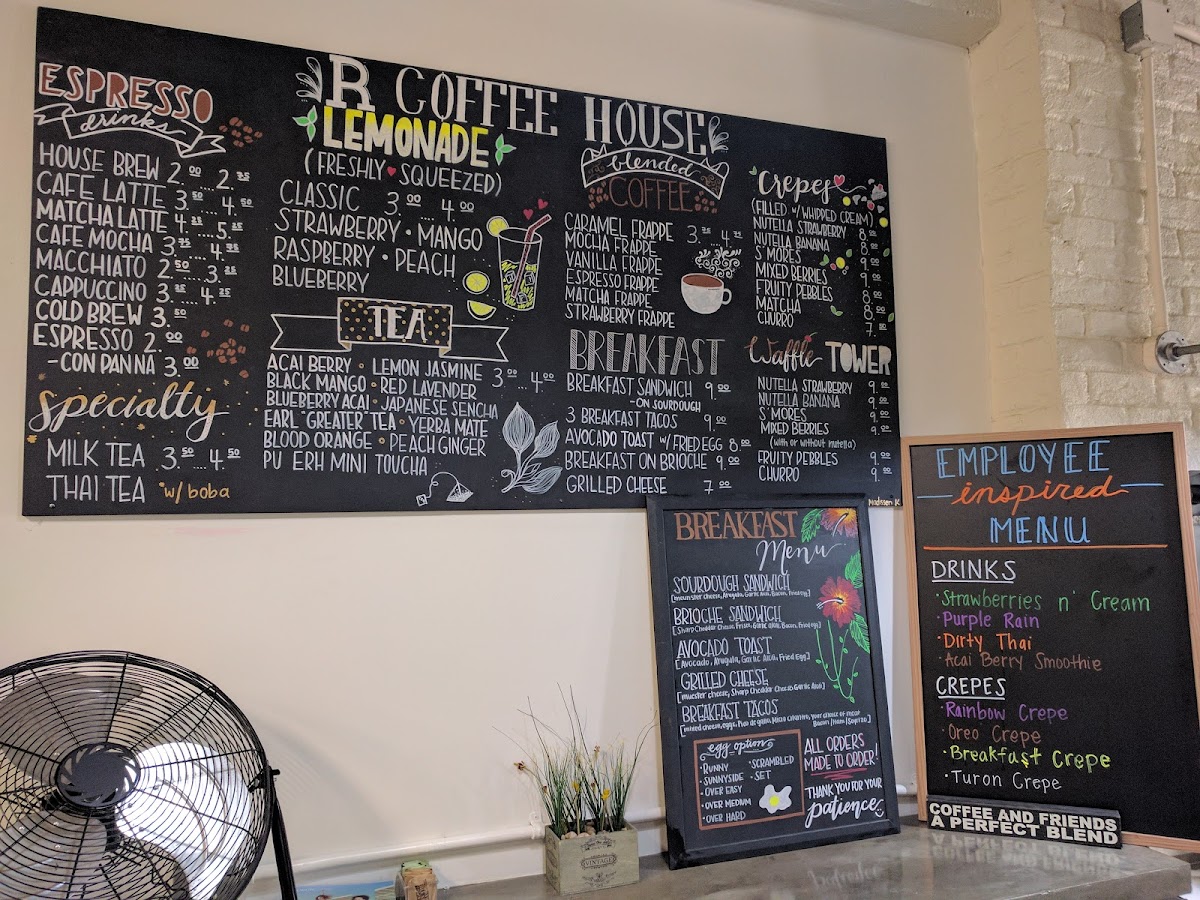 R COFFEE HOUSE
ESPRESSO
drinks
HOUSE BREW 2.00....2.75
CAFE LATTE 3.50....4.50
MATCHA LATTE 4.25....5.25
CAFE MOCHA 3.75....4.75
MACCHIATO 2.50....3.25
CAPPUCCINO 3.25....4.25
COLD BREW 3.50
ESPRESSO 2.00
-CON PANNA 3.00
specialty
MILK TEA 3.50....4.50
THAI TEA w/ boba
LEMONADE
(FRESHLY SQUEEZED)
CLASSIC 3.00....4.00
STRAWBERRY • MANGO
RASPBERRY • PEACH
BLUEBERRY
TEA
ACAI BERRY • LEMON JASMINE 3.00....4.00
BLACK MANGO • RED LAVENDER
BLUEBERRY ACAI • JAPANESE SENCHA
EARL "GREATER" TEA • YERBA MATE
BLOOD ORANGE • PEACH GINGER
PU ERH MINI TOUCHA
blended
COFFEE
CARAMEL FRAPPE 3.75....4.75
MOCHA FRAPPE
VANILLA FRAPPE
ESPRESSO FRAPPE
MATCHA FRAPPE
STRAWBERRY FRAPPE
BREAKFAST
BREAKFAST SANDWICH 9.00
-ON SOURDOUGH
3 BREAKFAST TACOS 9.00
AVOCADO TOAST w/ FRIED EGG 8.00
BREAKFAST ON BRIOCHE 9.00
GRILLED CHEESE 7.00
Crepes
(FILLED w/ WHIPPED CREAM)
NUTELLA STRAWBERRY 8.00
NUTELLA BANANA 8.00
S'MORES
MIXED BERRIES
FRUITY PEBBLES
MATCHA
CHURRO
Waffle TOWER
NUTELLA STRAWBERRY 9.00
NUTELLA BANANA 9.00
S'MORES 9.00
MIXED BERRIES 9.00
(with or without nutella)
FRUITY PEBBLES 9.00
CHURRO 9.00
Madissen K
BREAKFAST
Menu
SOURDOUGH SANDWICH
[muenster cheese, Arugula, Garlic Aioli, Bacon, Fried egg]
BRIOCHE SANDWICH
[Sharp Cheddar Cheese, Frisee, Garlic Aioli, Bacon, Fried egg]
AVOCADO TOAST
[Avocado, Arugula, Garlic Aioli, Fried Egg]
GRILLED CHEESE
[muester cheese, Sharp Cheddar Cheese, Garlic Aioli]
BREAKFAST TACOS
[mixed cheese, eggs, Pico de gallo, Micro cilantro, your choice of meat
Bacon |Ham |
egg option
• RUNNY
• SUNNYSIDE
• OVER EASY
• OVER MEDIUM
• OVER HARD
• SCRAMBLED
• SET
ALL ORDERS
MADE TO ORDER!
THANK YOU FOR YOUR
patience
EMPLOYEE
inspired
MENU
DRINKS
• Strawberries n' Cream
• Purple Rain
• Dirty Thai
• Acai Berry Smoothie
CREPES
• Rainbow Crepe
• Oreo Crepe
• Breakfast Crepe
• Turon Crepe
COFFEE AND FRIENDS
A PERFECT BLEND
VINTAGE